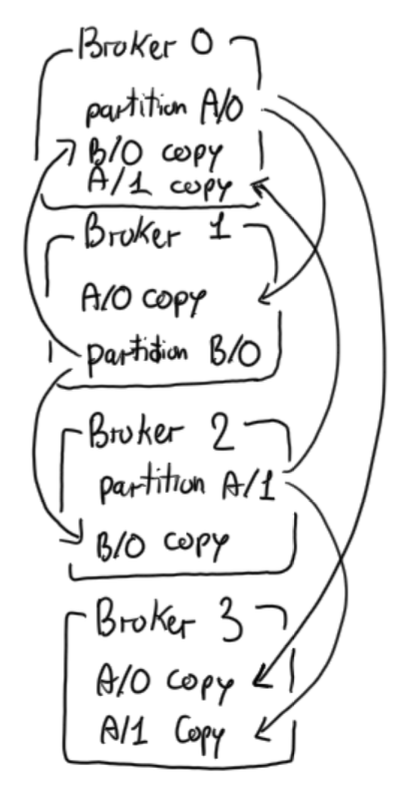 Broker 0
partition A/0
B/0 copy
A/1 copy
Broker 1
A/0 copy
partition B/0
Broker 2
partition A/1
B/0 copy
Broker 3
A/0 copy
A/1 Copy